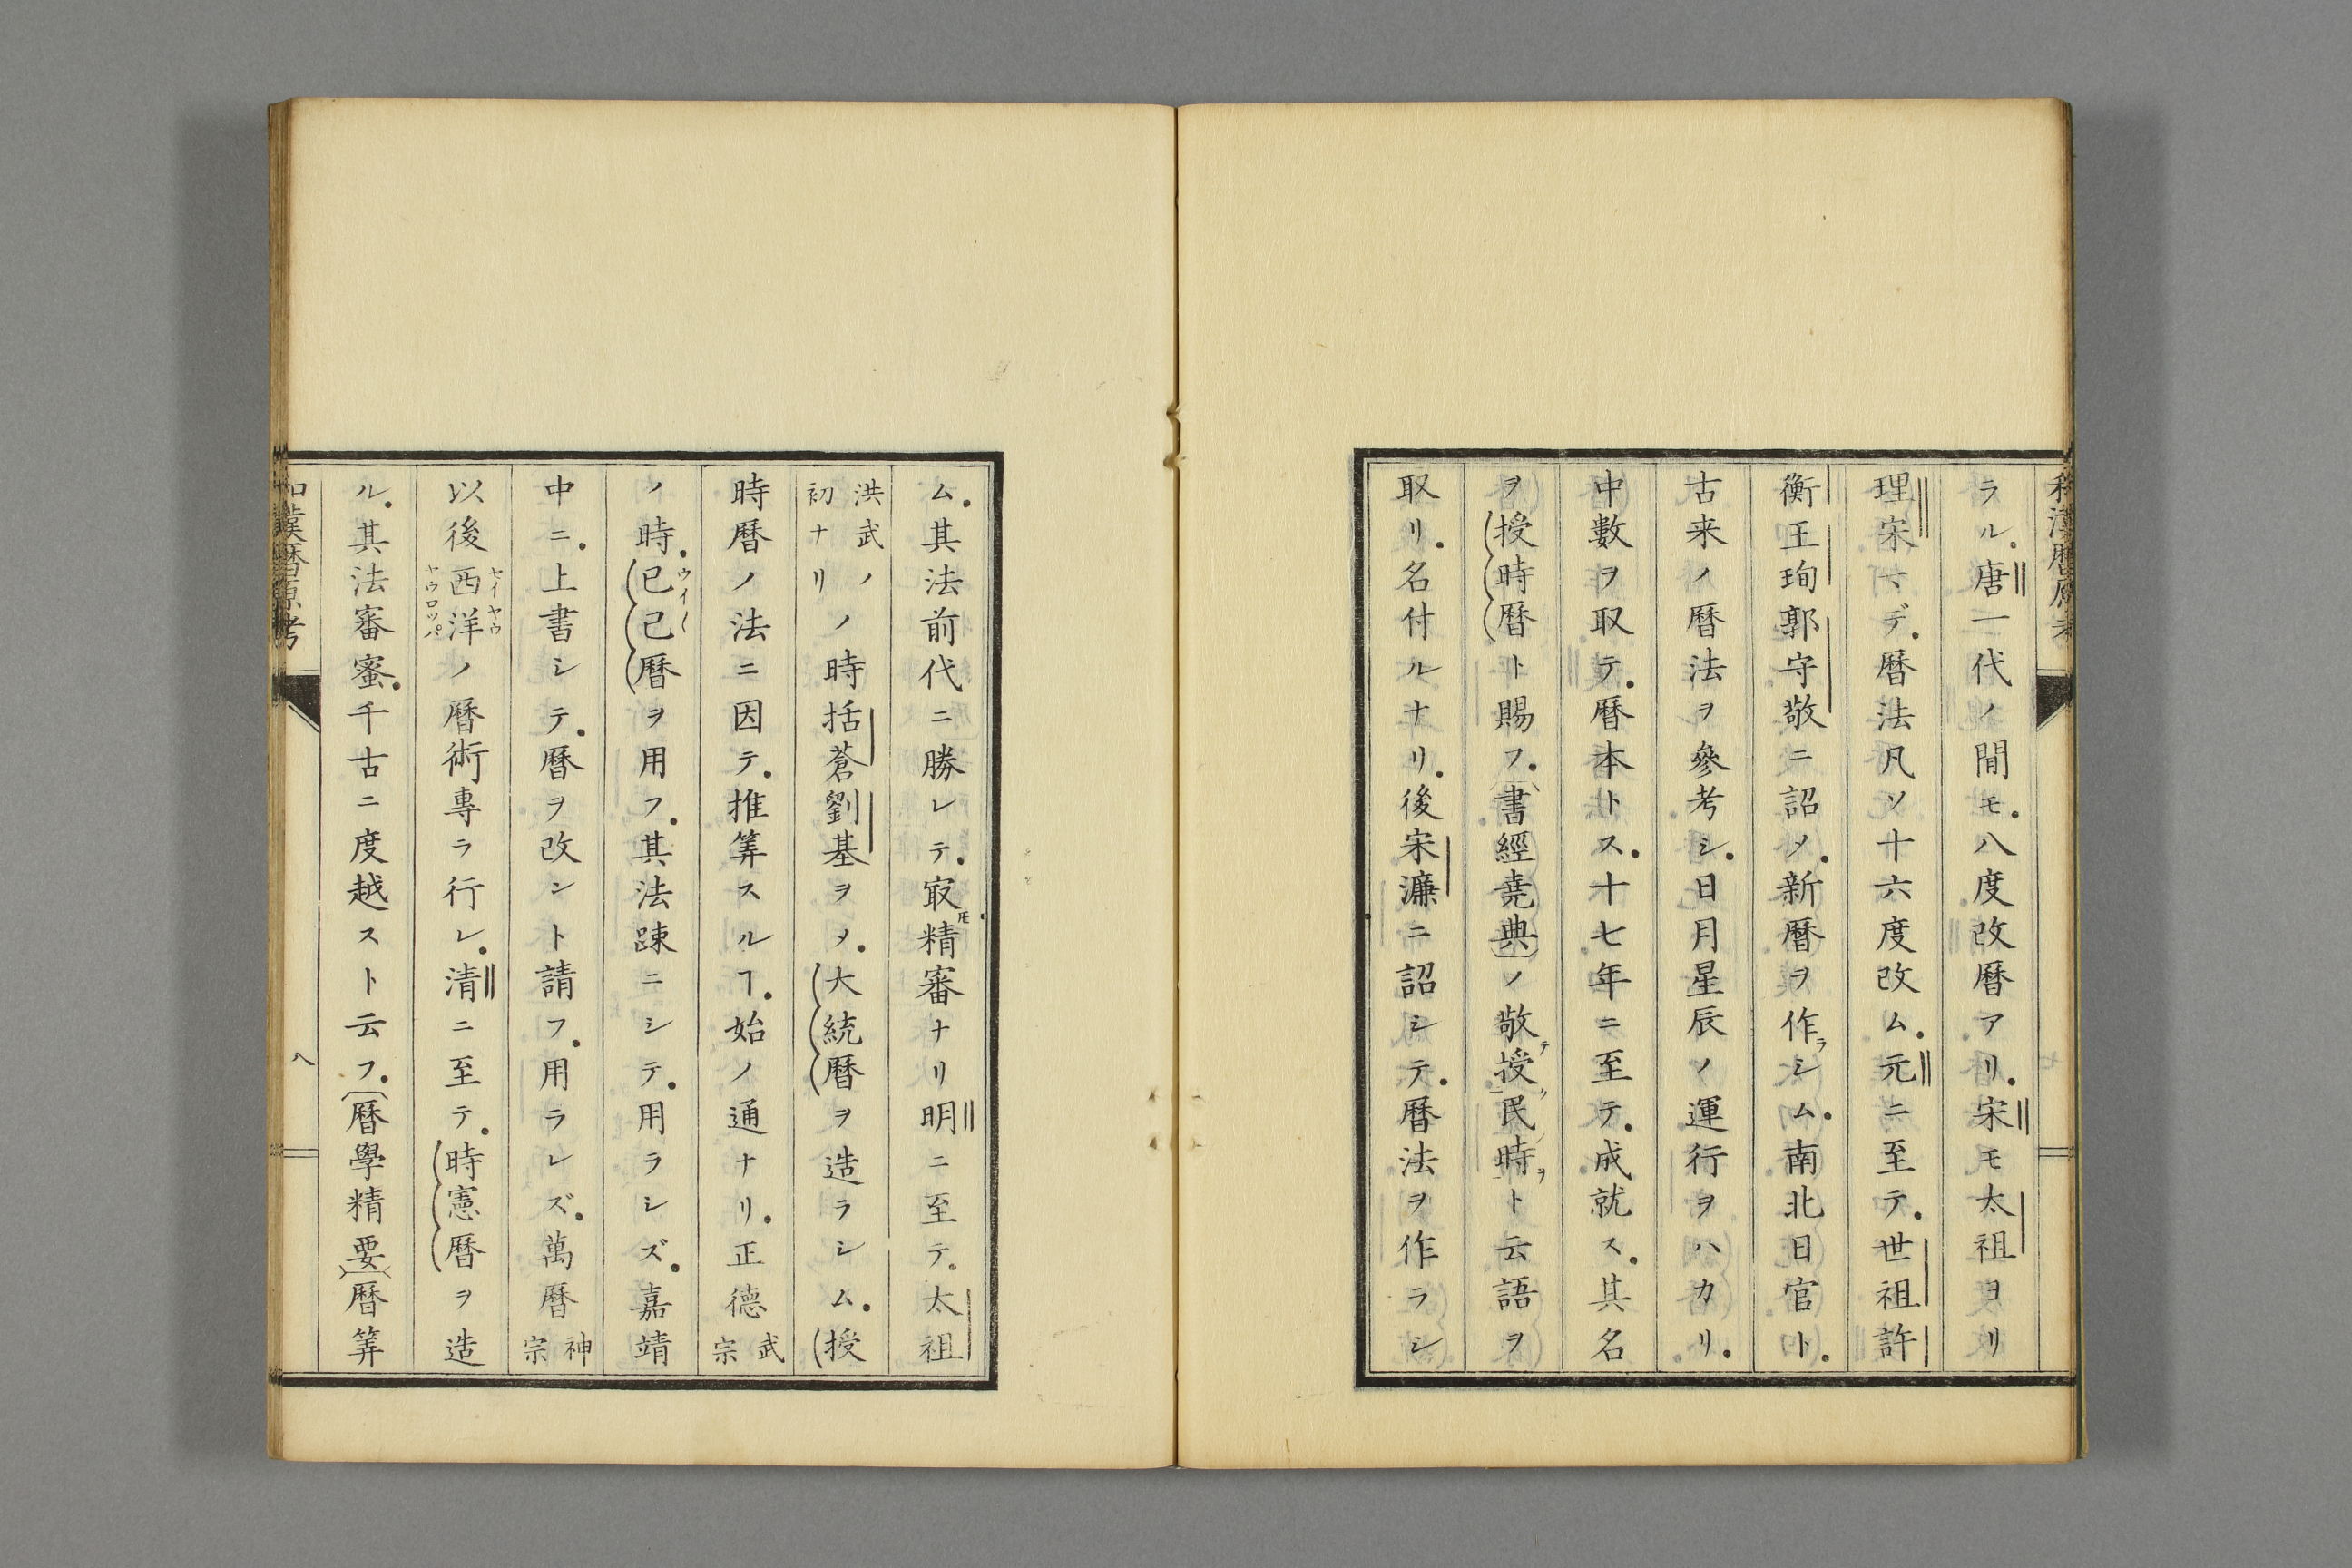 ラル唐一代ノ間モ八度改暦アリ宋モ太祖ヨリ
理宋マデ暦法凡ソ十六度改ム元ニ至テ世祖許
衡王珣郭守敬ニ詔メ新暦ヲ作ラシム南北日官ト
古来ノ暦法ヲ參考シ日月星辰ノ運行ヲハカリ
中數ヲ取テ暦本トス十七年ニ至テ成就ス其名
ヲ授時暦ト賜フ書經堯典ノ敬テ授ク民ノ時ヲト云語ヲ
取リ名付ルナリ後宋濂ニ詔シテ暦法ヲ作ラシ
ム其法前代ニ勝レテ㝡モ精審ナリ明ニ至テ太祖
洪武ノ初ナリノ時括蒼劉基ヲメ大統暦ヲ造ラシム授
時暦ノ法ニ因テ推筭スルヿ始ノ通ナリ正德武宗
ノ時已已暦ヲ用フ其法踈ニシテ用ラレズ嘉靖
中ニ上書シテ暦ヲ改ント請フ用ラレズ萬暦神宗
以後西洋ノ暦術專ラ行レ清ニ至テ時憲暦ヲ造
セイヤウ
ヤウロツパ
ル其法審蜜千古ニ度越スト云フ暦學精要暦筭
八